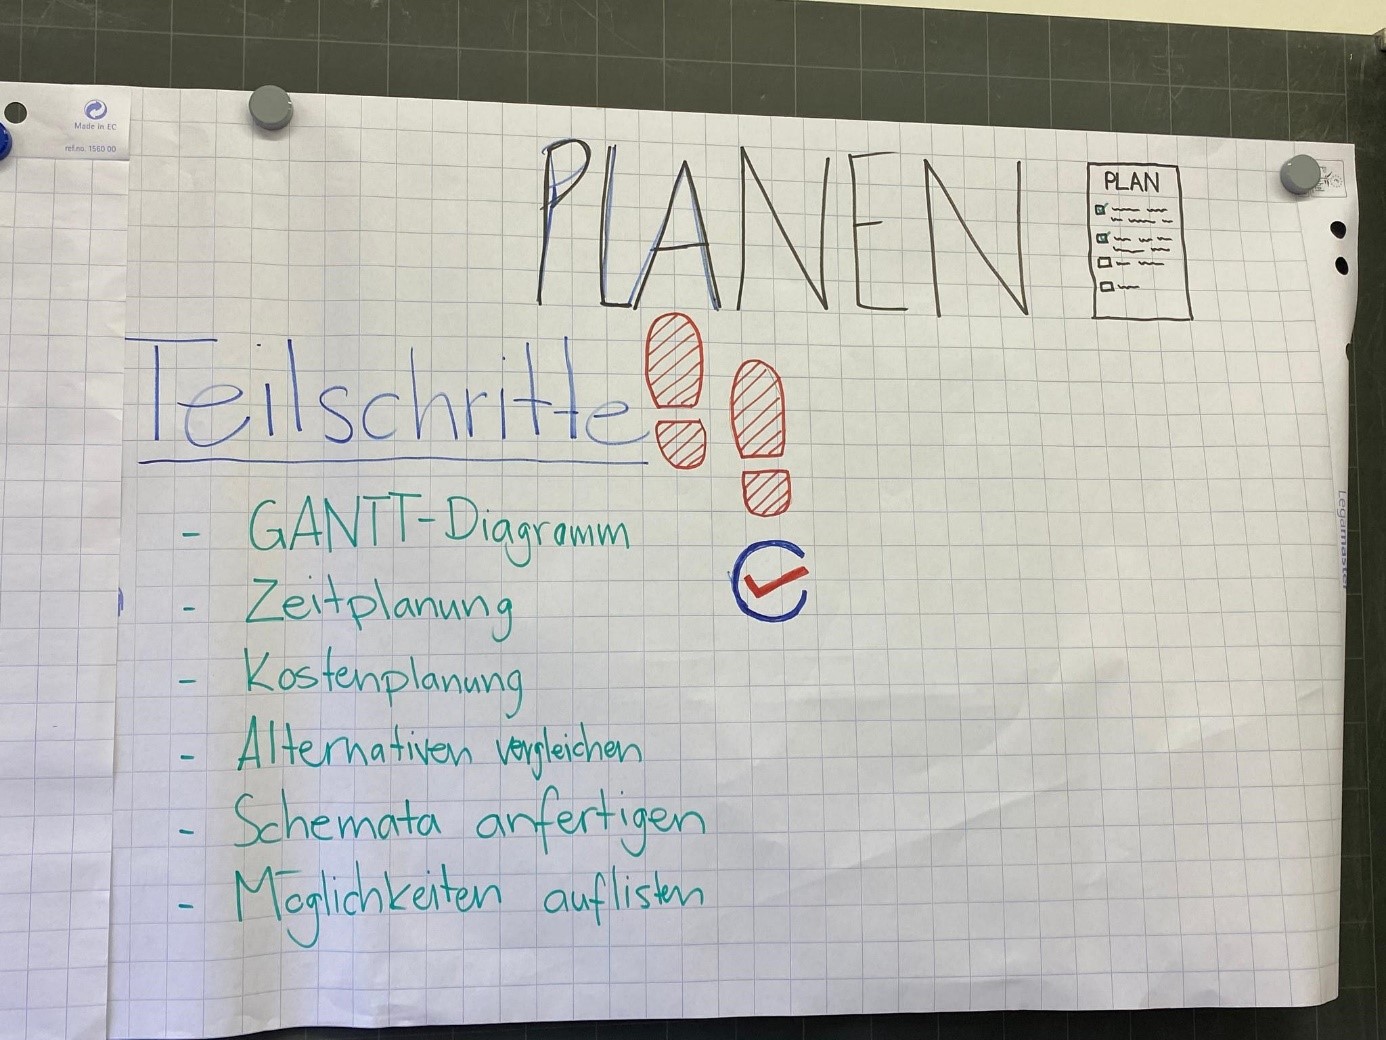 Made in EC
ref.no. 1560 00
PLANEN
PLAN
Teilschritte
- GANTT-Diagramm
- Zeitplanung
- Kostenplanung
- Alternativen vergleichen
- Schemata anfertigen
- Möglichkeiten auflisten
Legamaster